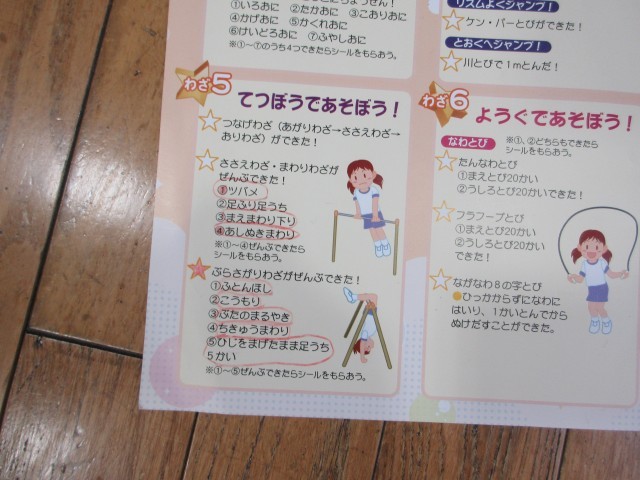 ①いろおに ②たかおに ③こおりおに
④かげおに ⑤かくれおに
⑥けいどろおに ⑦ふやしおに
※①〜⑦のうち4つできたらシールをもらおう。
リズムよくジャンプ！
ケン・パーとびができた！
とおくへジャンプ！
川とびで1mとんだ！
わざ5
てつぼうであそぼう！
つなげわざ（あがりわざ→ささえわざ→
おりわざ）ができた！
ささえわざ・まわりわざが
ぜんぶできた！
①ツバメ
②足ふり足うち
③まえまわり下り
④あしぬきまわり
※①〜④ぜんぶできたら
シールをもらおう。
ぶらさがりわざがぜんぶできた！
①ふとんほし
②こうもり
③ぶたのまるやき
④ちきゅうまわり
⑤ひじをまげたまま足うち
5かい
※①〜⑤ぜんぶできたらシールをもらおう。
わざ6
ようぐであそぼう！
なわとび
※①、②どちらもできたら
シールをもらおう。
たんなわとび
①まえとび20かい
②うしろとび20かいできた！
フラフープとび
①まえとび20かい
②うしろとび20かい
できた！
ながなわ8の字とび
●ひっかからずになわに
はいり、1かいとんでから
ぬけだすことができた。